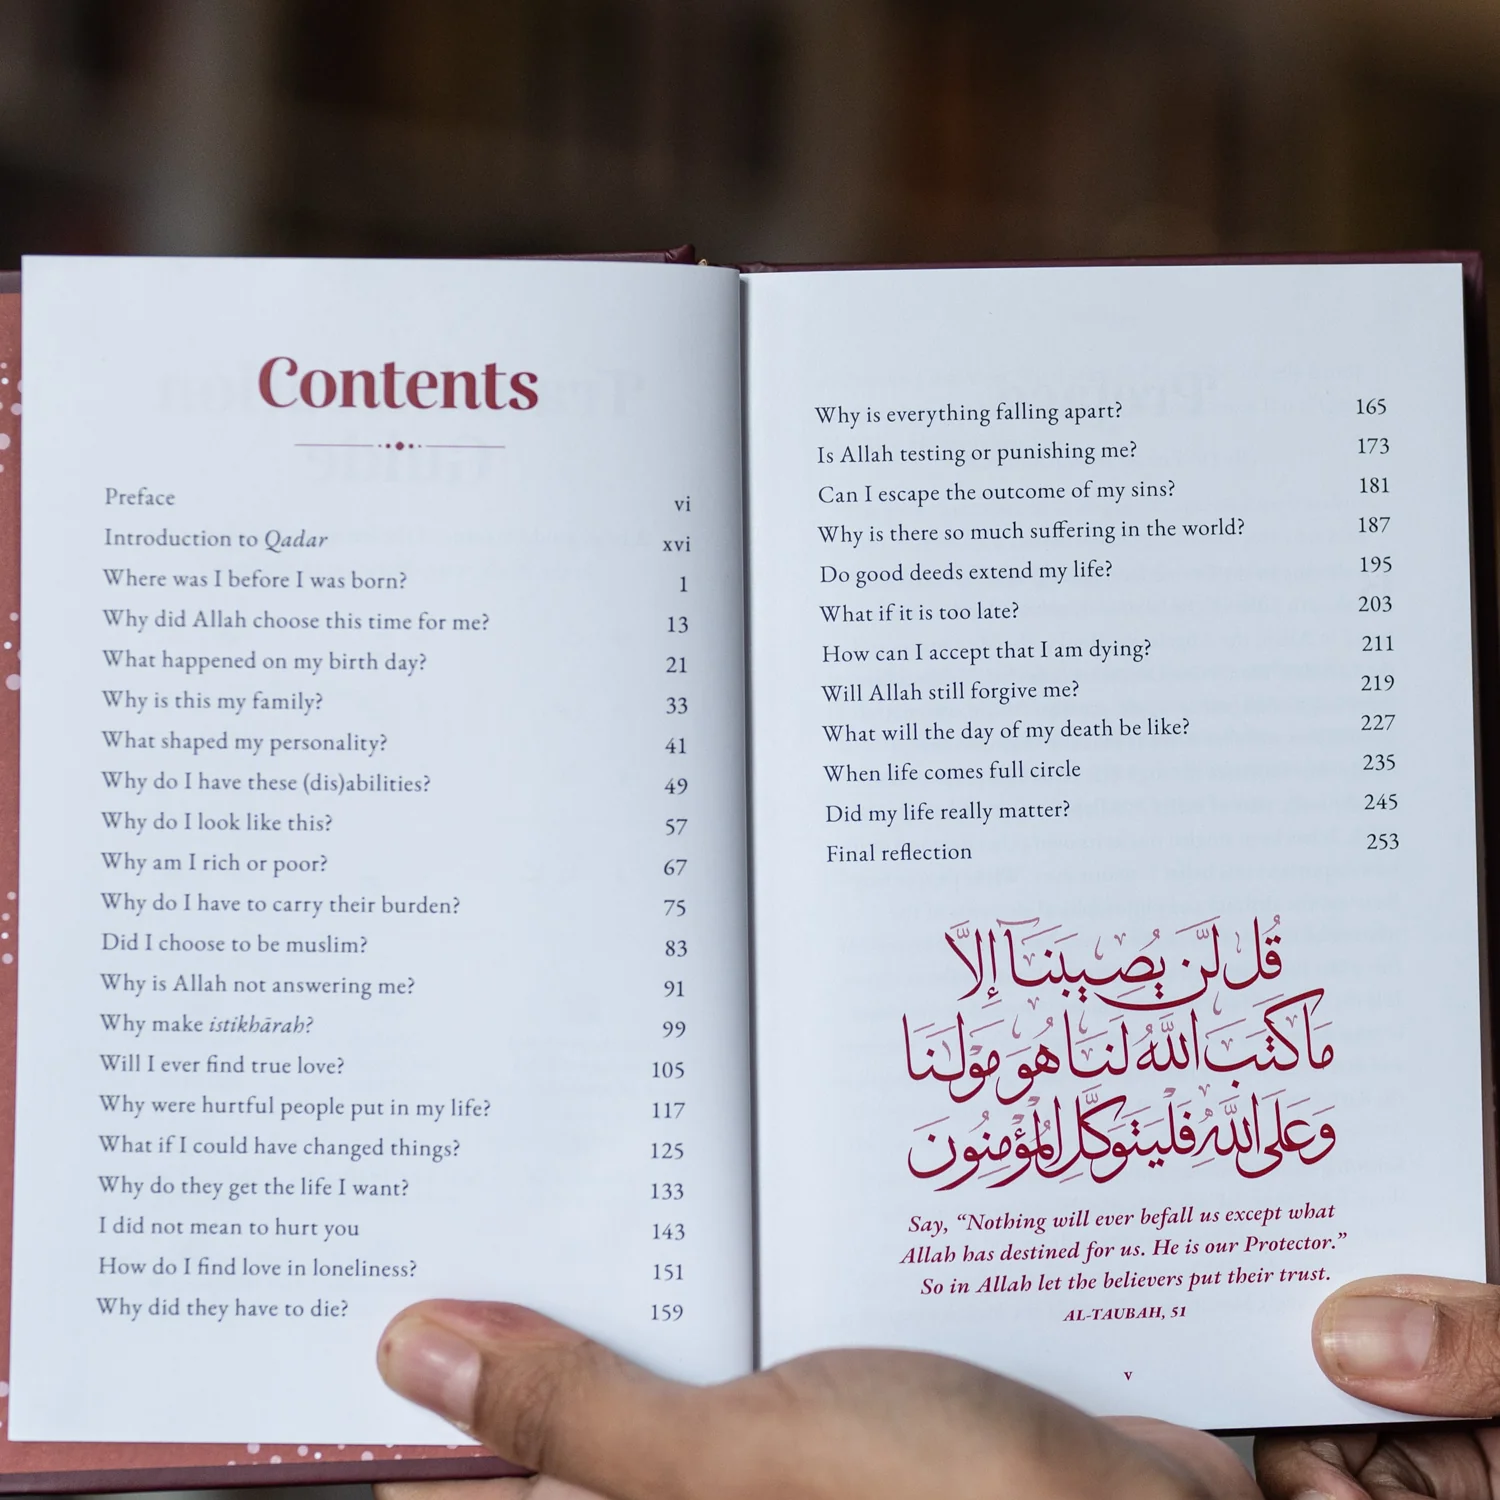 Contents
Preface vi
Introduction to Qadar xvi
Where was I before I was born? 1
Why did Allah choose this time for me? 13
What happened on my birth day? 21
Why is this my family? 33
What shaped my personality? 41
Why do I have these (dis)abilities? 49
Why do I look like this? 57
Why am I rich or poor? 67
Why do I have to carry their burden? 75
Did I choose to be muslim? 83
Why is Allah not answering me? 91
Why make istikhārah? 99
Will I ever find true love? 105
Why were hurtful people put in my life? 117
What if I could have changed things? 125
Why do they get the life I want? 133
I did not mean to hurt you 143
How do I find love in loneliness? 151
Why did they have to die? 159
Why is everything falling apart? 165
Is Allah testing or punishing me? 173
Can I escape the outcome of my sins? 181
Why is there so much suffering in the world? 187
Do good deeds extend my life? 195
What if it is too late? 203
How can I accept that I am dying? 211
Will Allah still forgive me? 219
What will the day of my death be like? 227
When life comes full circle 235
Did my life really matter? 245
Final reflection 253
قُل لَّن يُصِيبَنَآ إِلَّا
مَا كَتَبَ اللَّهُ لَنَا هُوَ مَوْلَىٰنَا
وَعَلَى اللَّهِ فَلْيَتَوَكَّلِ الْمُؤْمِنُونَ
Say, “Nothing will ever befall us except what
Allah has destined for us. He is our Protector.”
So in Allah let the believers put their trust.
AL-TAUBAH, 51
v